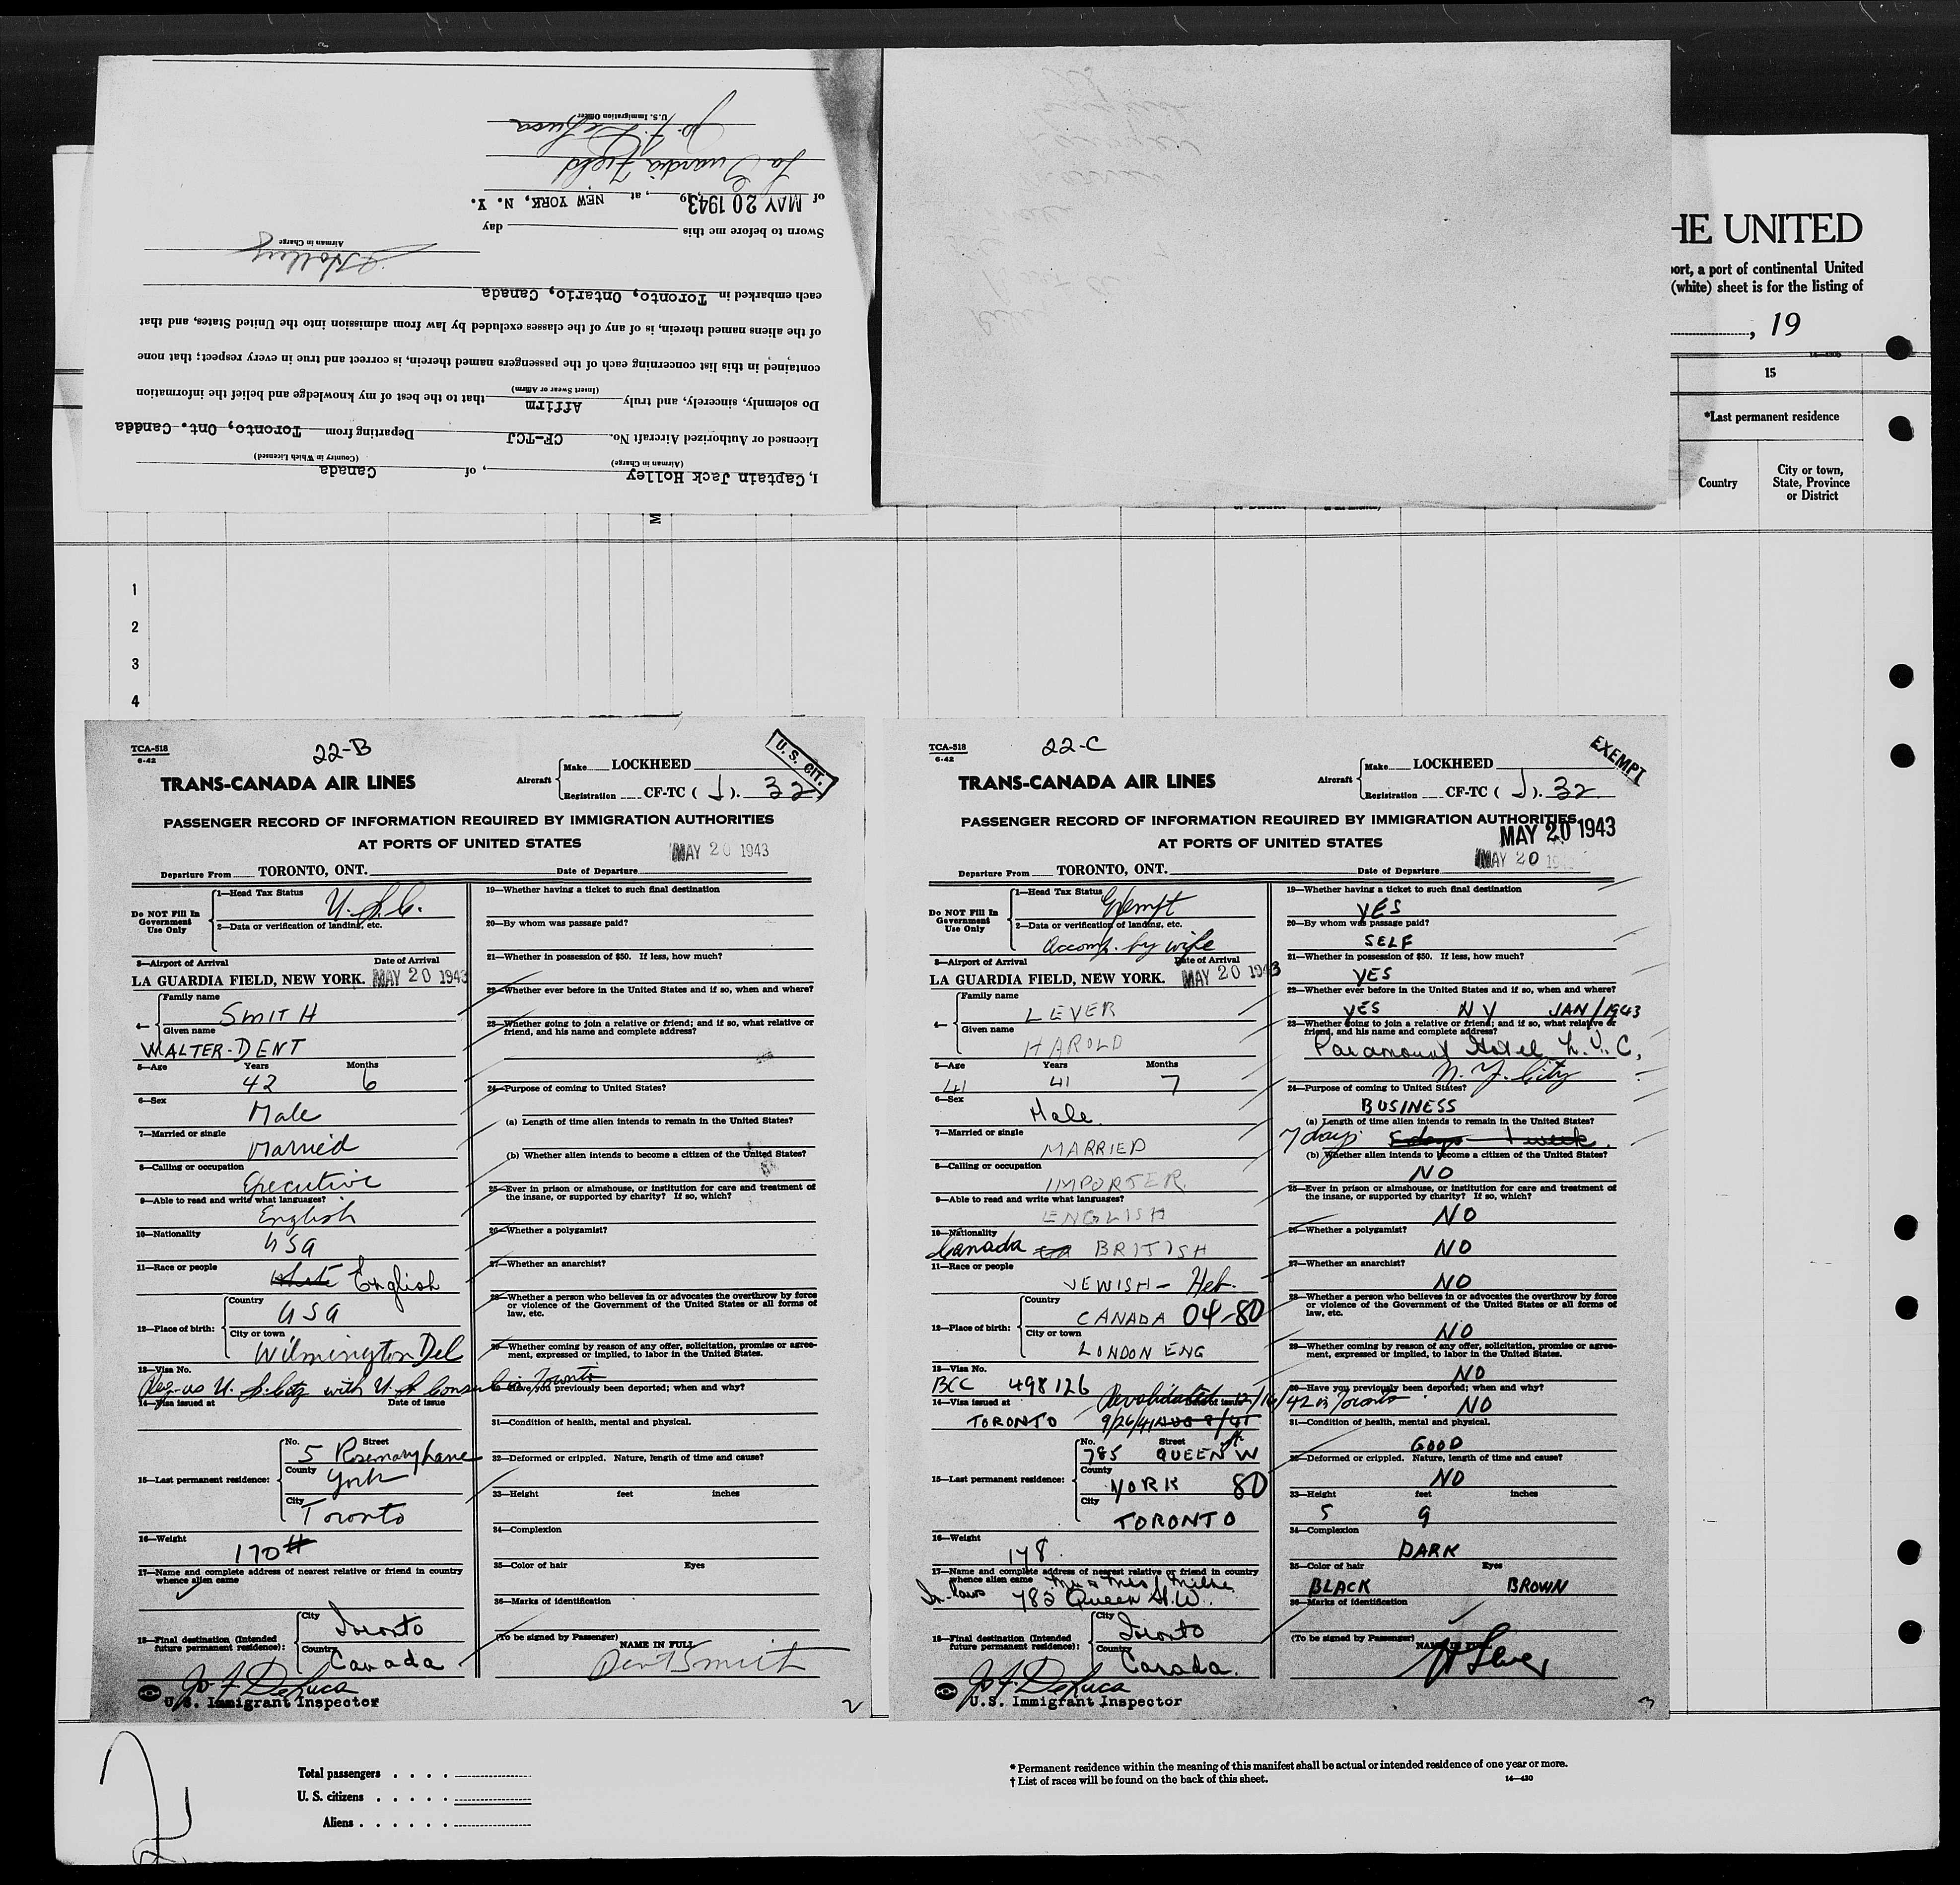 I, Captain Jack Holley, of Canada
(Airman in Charge) (Country in Which Licensed)
Licensed or Authorized Aircraft No. CF-TCJ Departing from Toronto, Ont. Canada
Do solemnly, sincerely, and truly Affirm that to the best of my knowledge and belief the information
(Insert Swear or Affirm)
contained in this list concerning each of the passengers named therein, is correct and true in every respect; that none
of the aliens named therein, is of any of the classes excluded by law from admission into the United States, and that
each embarked in Toronto, Ontario, Canada
J Holley
Airman in Charge
Sworn to before me this day
of MAY 20 1943 19, at NEW YORK, N. Y.
La Guardia Field
J. F. DeLuca
U.S. Immigration Officer
HE UNITED
port, a port of continental United
(white) sheet is for the listing of
, 19
15
*Last permanent residence
Country
City or town,
State, Province
or District
1
2
3
4
TCA-518
6-42
22-B
U. S. CIT.
TRANS-CANADA AIR LINES
Aircraft
Make LOCKHEED
Registration CF-TC ( J ). 32
PASSENGER RECORD OF INFORMATION REQUIRED BY IMMIGRATION AUTHORITIES
AT PORTS OF UNITED STATES
MAY 20 1943
Departure From TORONTO, ONT. Date of Departure
Do NOT Fill In
Government
Use Only
1—Head Tax Status U.S.C.
2—Data or verification of landing, etc.
3—Airport of Arrival Date of Arrival
LA GUARDIA FIELD, NEW YORK. MAY 20 1943
4—
Family name
SMITH
Given name
WALTER-DENT
5—Age Years Months
42 6
6—Sex
Male
7—Married or single
Married
8—Calling or occupation
Executive
9—Able to read and write what languages?
English
10—Nationality
USA
11—Race or people
White English
12—Place of birth:
Country
USA
City or town
Wilmington Del
13—Visa No.
Reg. as U.S. Citz with U.S. Consul in Toronto
14—Visa issued at Date of issue
15—Last permanent residence:
No. Street
5 Rosemary Lane
County
York
City
Toronto
16—Weight
170#
17—Name and complete address of nearest relative or friend in country
whence alien came
18—Final destination (Intended
future permanent residence):
City
Toronto
Country
Canada
J. F. DeLuca
U.S. Immigrant Inspector
19—Whether having a ticket to such final destination
20—By whom was passage paid?
21—Whether in possession of $50. If less, how much?
22—Whether ever before in the United States and if so, when and where?
23—Whether going to join a relative or friend; and if so, what relative or
friend, and his name and complete address?
24—Purpose of coming to United States?
(a) Length of time alien intends to remain in the United States?
(b) Whether alien intends to become a citizen of the United States?
25—Ever in prison or almshouse, or institution for care and treatment of
the insane, or supported by charity? If so, which?
26—Whether a polygamist?
27—Whether an anarchist?
28—Whether a person who believes in or advocates the overthrow by force
or violence of the Government of the United States or all forms of
law, etc.
29—Whether coming by reason of any offer, solicitation, promise or agree-
ment, expressed or implied, to labor in the United States.
30—Have you previously been deported; when and why?
31—Condition of health, mental and physical.
32—Deformed or crippled. Nature, length of time and cause?
33—Height feet inches
34—Complexion
35—Color of hair Eyes
36—Marks of identification
(To be signed by Passenger) NAME IN FULL
Dent Smith
2
TCA-518
6-42
22-C
EXEMPT
TRANS-CANADA AIR LINES
Aircraft
Make LOCKHEED
Registration CF-TC ( J ). 32
PASSENGER RECORD OF INFORMATION REQUIRED BY IMMIGRATION AUTHORITIES
AT PORTS OF UNITED STATES
MAY 20 1943
MAY 20
Departure From TORONTO, ONT. Date of Departure
Do NOT Fill In
Government
Use Only
1—Head Tax Status Exempt
2—Data or verification of landing, etc.
Accomp. by wife
3—Airport of Arrival Date of Arrival
LA GUARDIA FIELD, NEW YORK. MAY 20 1943
4—
Family name
LEVER
Given name
HAROLD
5—Age Years Months
41 41 7
6—Sex
Male
7—Married or single
MARRIED
8—Calling or occupation
IMPORTER
9—Able to read and write what languages?
ENGLISH
10—Nationality
Canada BRITISH
11—Race or people
JEWISH - Heb.
12—Place of birth:
Country
CANADA 04-80
City or town
LONDON ENG
13—Visa No.
BCC 498126 Revalidated 12/16/42 in Toronto
14—Visa issued at Date of issue
TORONTO 9/26/41 AUG 8/41
15—Last permanent residence:
No. Street
785 QUEEN St. W
County
YORK 80
City
TORONTO
16—Weight
178
17—Name and complete address of nearest relative or friend in country
whence alien came Mr & Mrs
In-laws 785 Queen St. W.
18—Final destination (Intended
future permanent residence):
City
Toronto
Country
Canada.
J. F. DeLuca
U.S. Immigrant Inspector
19—Whether having a ticket to such final destination
YES
20—By whom was passage paid?
SELF
21—Whether in possession of $50. If less, how much?
YES
22—Whether ever before in the United States and if so, when and where?
YES NY JAN/1943
23—Whether going to join a relative or friend; and if so, what relative or
friend, and his name and complete address?
Paramount Hotel N.Y.C.
N.Y. City
24—Purpose of coming to United States?
BUSINESS
(a) Length of time alien intends to remain in the United States?
7 days 5 days - 1 week.
(b) Whether alien intends to become a citizen of the United States?
NO
25—Ever in prison or almshouse, or institution for care and treatment of
the insane, or supported by charity? If so, which?
NO
26—Whether a polygamist?
NO
27—Whether an anarchist?
NO
28—Whether a person who believes in or advocates the overthrow by force
or violence of the Government of the United States or all forms of
law, etc.
NO
29—Whether coming by reason of any offer, solicitation, promise or agree-
ment, expressed or implied, to labor in the United States.
NO
30—Have you previously been deported; when and why?
NO
31—Condition of health, mental and physical.
GOOD
32—Deformed or crippled. Nature, length of time and cause?
NO
33—Height feet inches
5 9
34—Complexion
DARK
35—Color of hair Eyes
BLACK BROWN
36—Marks of identification
(To be signed by Passenger) NAME IN FULL
H Lever
3
Total passengers . . . .
U. S. citizens . . . . .
Aliens . . . . . .
* Permanent residence within the meaning of this manifest shall be actual or intended residence of one year or more.
† List of races will be found on the back of this sheet.
14—430